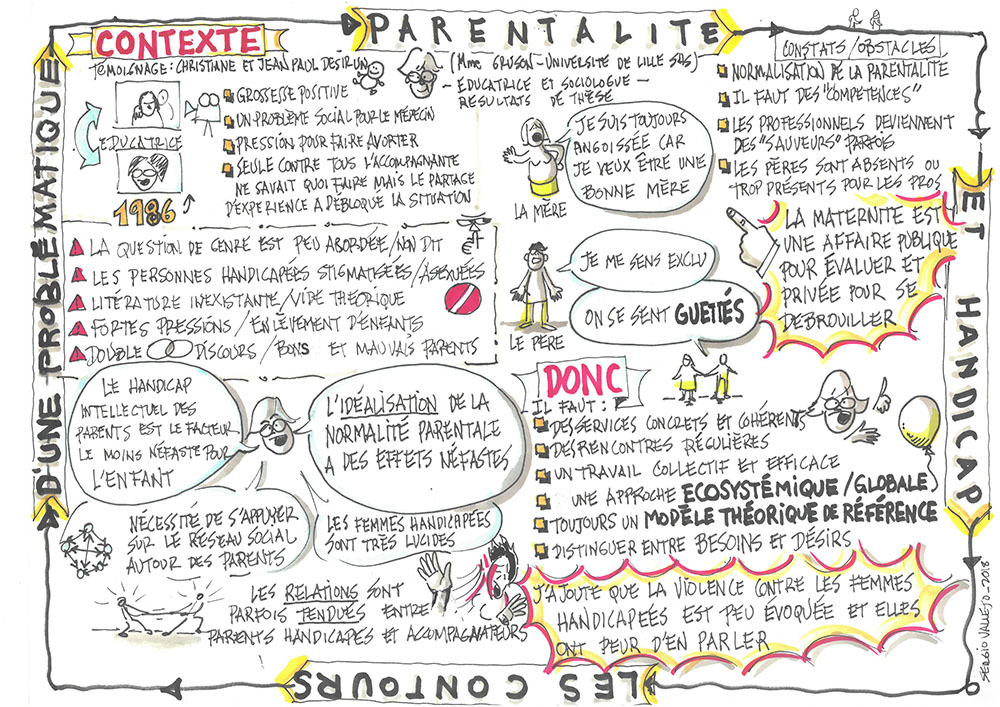 PARENTALITE
ET HANDICAP
LES CONTOURS
D'UNE PROBLÉMATIQUE
CONTEXTE
TÉMOIGNAGE: CHRISTIANE ET JEAN PAUL DESIRUN
EDUCATRICE
1986
GROSSESSE POSITIVE
UN PROBLÈME SOCIAL POUR LE MÉDECIN
PRESSION POUR FAIRE AVORTER
SEULE CONTRE TOUS L'ACCOMPAGNANTE
NE SAVAIT QUOI FAIRE MAIS LE PARTAGE
D'EXPERIENCE A DÉBLOQUÉ LA SITUATION
(Mme GRUSON - UNIVERSITÉ DE LILLE
- EDUCATRICE ET SOCIOLOGUE -
RESULTATS DE THÈSE
JE SUIS TOUJOURS
ANGOISSÉE CAR
JE VEUX ÊTRE UNE
BONNE MÈRE
LA MÈRE
JE ME SENS EXCLU
ON SE SENT GUETTÉS
LE PÈRE
CONSTATS/OBSTACLES
NORMALISATION DE LA PARENTALITÉ
IL FAUT DES "COMPÉTENCES"
LES PROFESSIONNELS DEVIENNENT
DES "SAUVEURS" PARFOIS
LES PÈRES SONT ABSENTS OU
TROP PRÉSENTS POUR LES PROS
LA MATERNITE EST
UNE AFFAIRE PUBLIQUE
POUR ÉVALUER ET
PRIVÉE POUR SE
DEBROUILLER
LA QUESTION DE GENRE EST PEU ABORDÉE/NON DIT
LES PERSONNES HANDICAPÉES STIGMATISÉES/
LITÉRATURE INEXISTANTE/VIDE THÉORIQUE
FORTES PRESSIONS/ENLÈVEMENT D'ENFANTS
DOUBLE DISCOURS/BONS ET MAUVAIS PARENTS
LE HANDICAP
INTELLECTUEL DES
PARENTS EST LE FACTEUR
LE MOINS NÉFASTE POUR
L'ENFANT
L'IDÉALISATION DE LA
NORMALITÉ PARENTALE
A DES EFFETS NÉFASTES
NÉCESSITÉ DE S'APPUYER
SUR LE RÉSEAU SOCIAL
AUTOUR DES PARENTS
LES FEMMES HANDICAPÉES
SONT TRÈS LUCIDES
LES RELATIONS SONT
PARFOIS TENDUES ENTRE
PARENTS HANDICAPÉS ET ACCOMPAGNATEURS
DONC
IL FAUT:
DES SERVICES CONCRETS ET COHÉRENTS
DES RENCONTRES RÉGULIÈRES
UN TRAVAIL COLLECTIF ET EFFICACE
UNE APPROCHE ECOSYSTÉMIQUE/GLOBALE
TOUJOURS UN MODÈLE THÉORIQUE DE RÉFÉRENCE
DISTINGUER ENTRE BESOINS ET DÉSIRS
J'AJOUTE QUE LA VIOLENCE CONTRE LES FEMMES
HANDICAPÉES EST PEU ÉVOQUÉE ET ELLES
ONT PEUR D'EN PARLER
SERGIO VALLEJO 2018